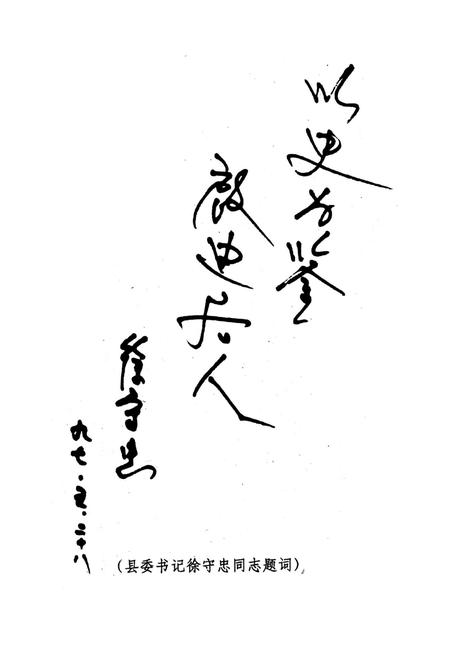 以史为鉴
启迪后人
徐守忠
九七·五·二十八
（县委书记徐守忠同志题词）